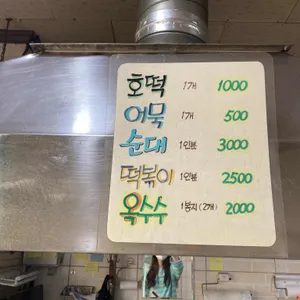 호떡 1개 1000
어묵 1개 500
순대 1인분 3000
떡볶이 1인분 2500
옥수수 1봉지(2개) 2000